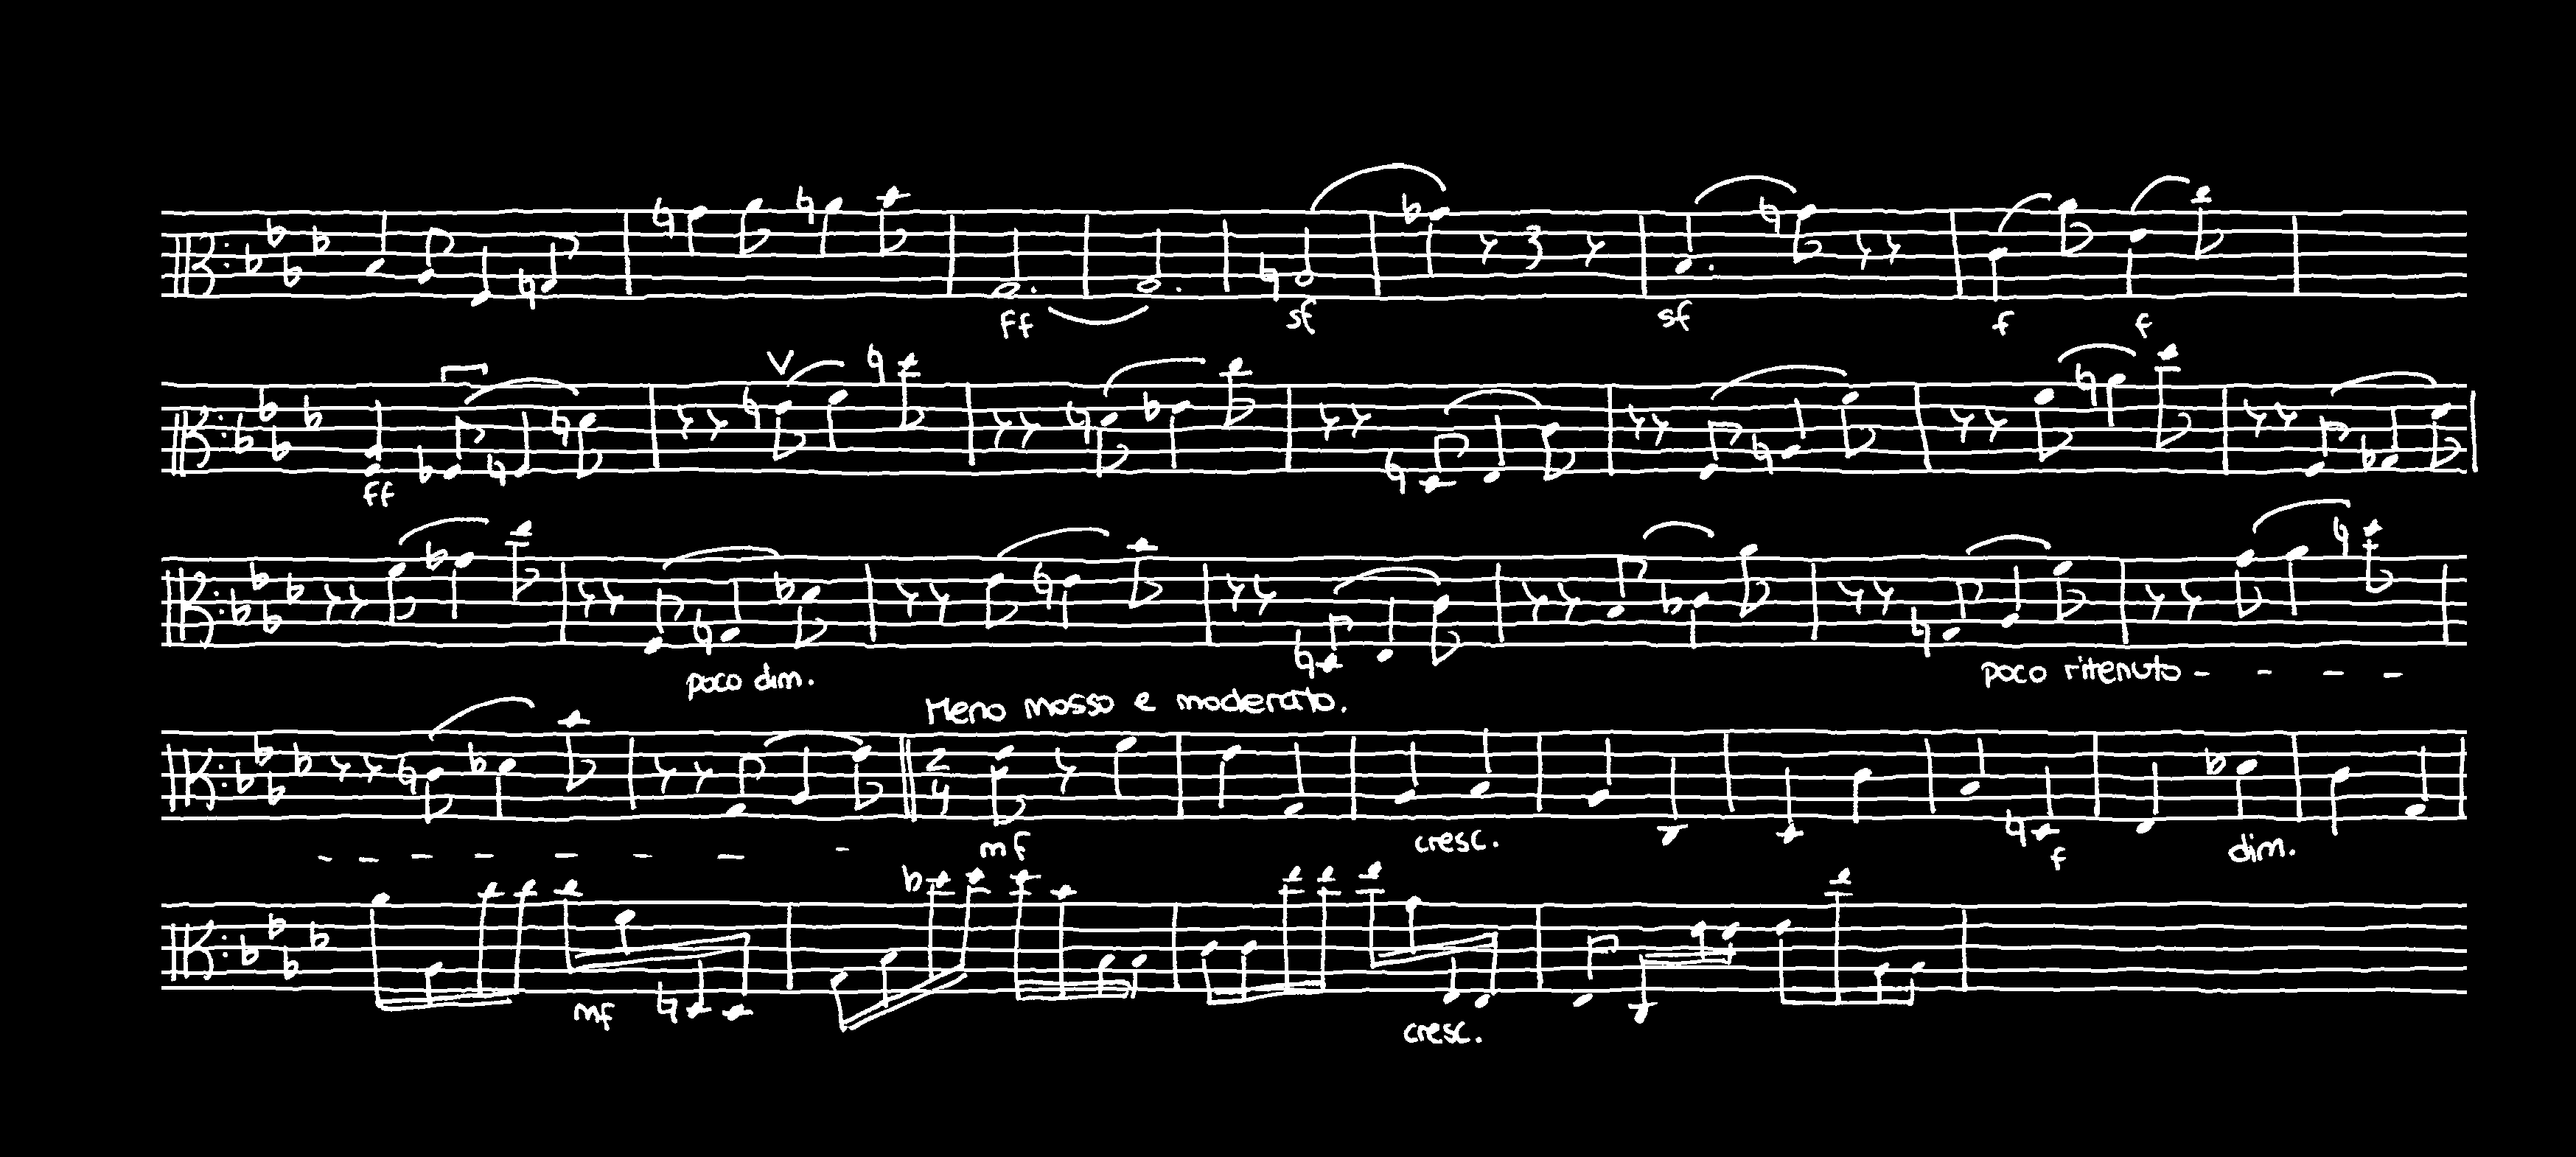 ff sf sf f f
V
ff
poco dim. poco ritenuto - - - -
Meno mosso e moderato.
2
4
- - - - - - - -
mf cresc. f dim.
mf cresc.